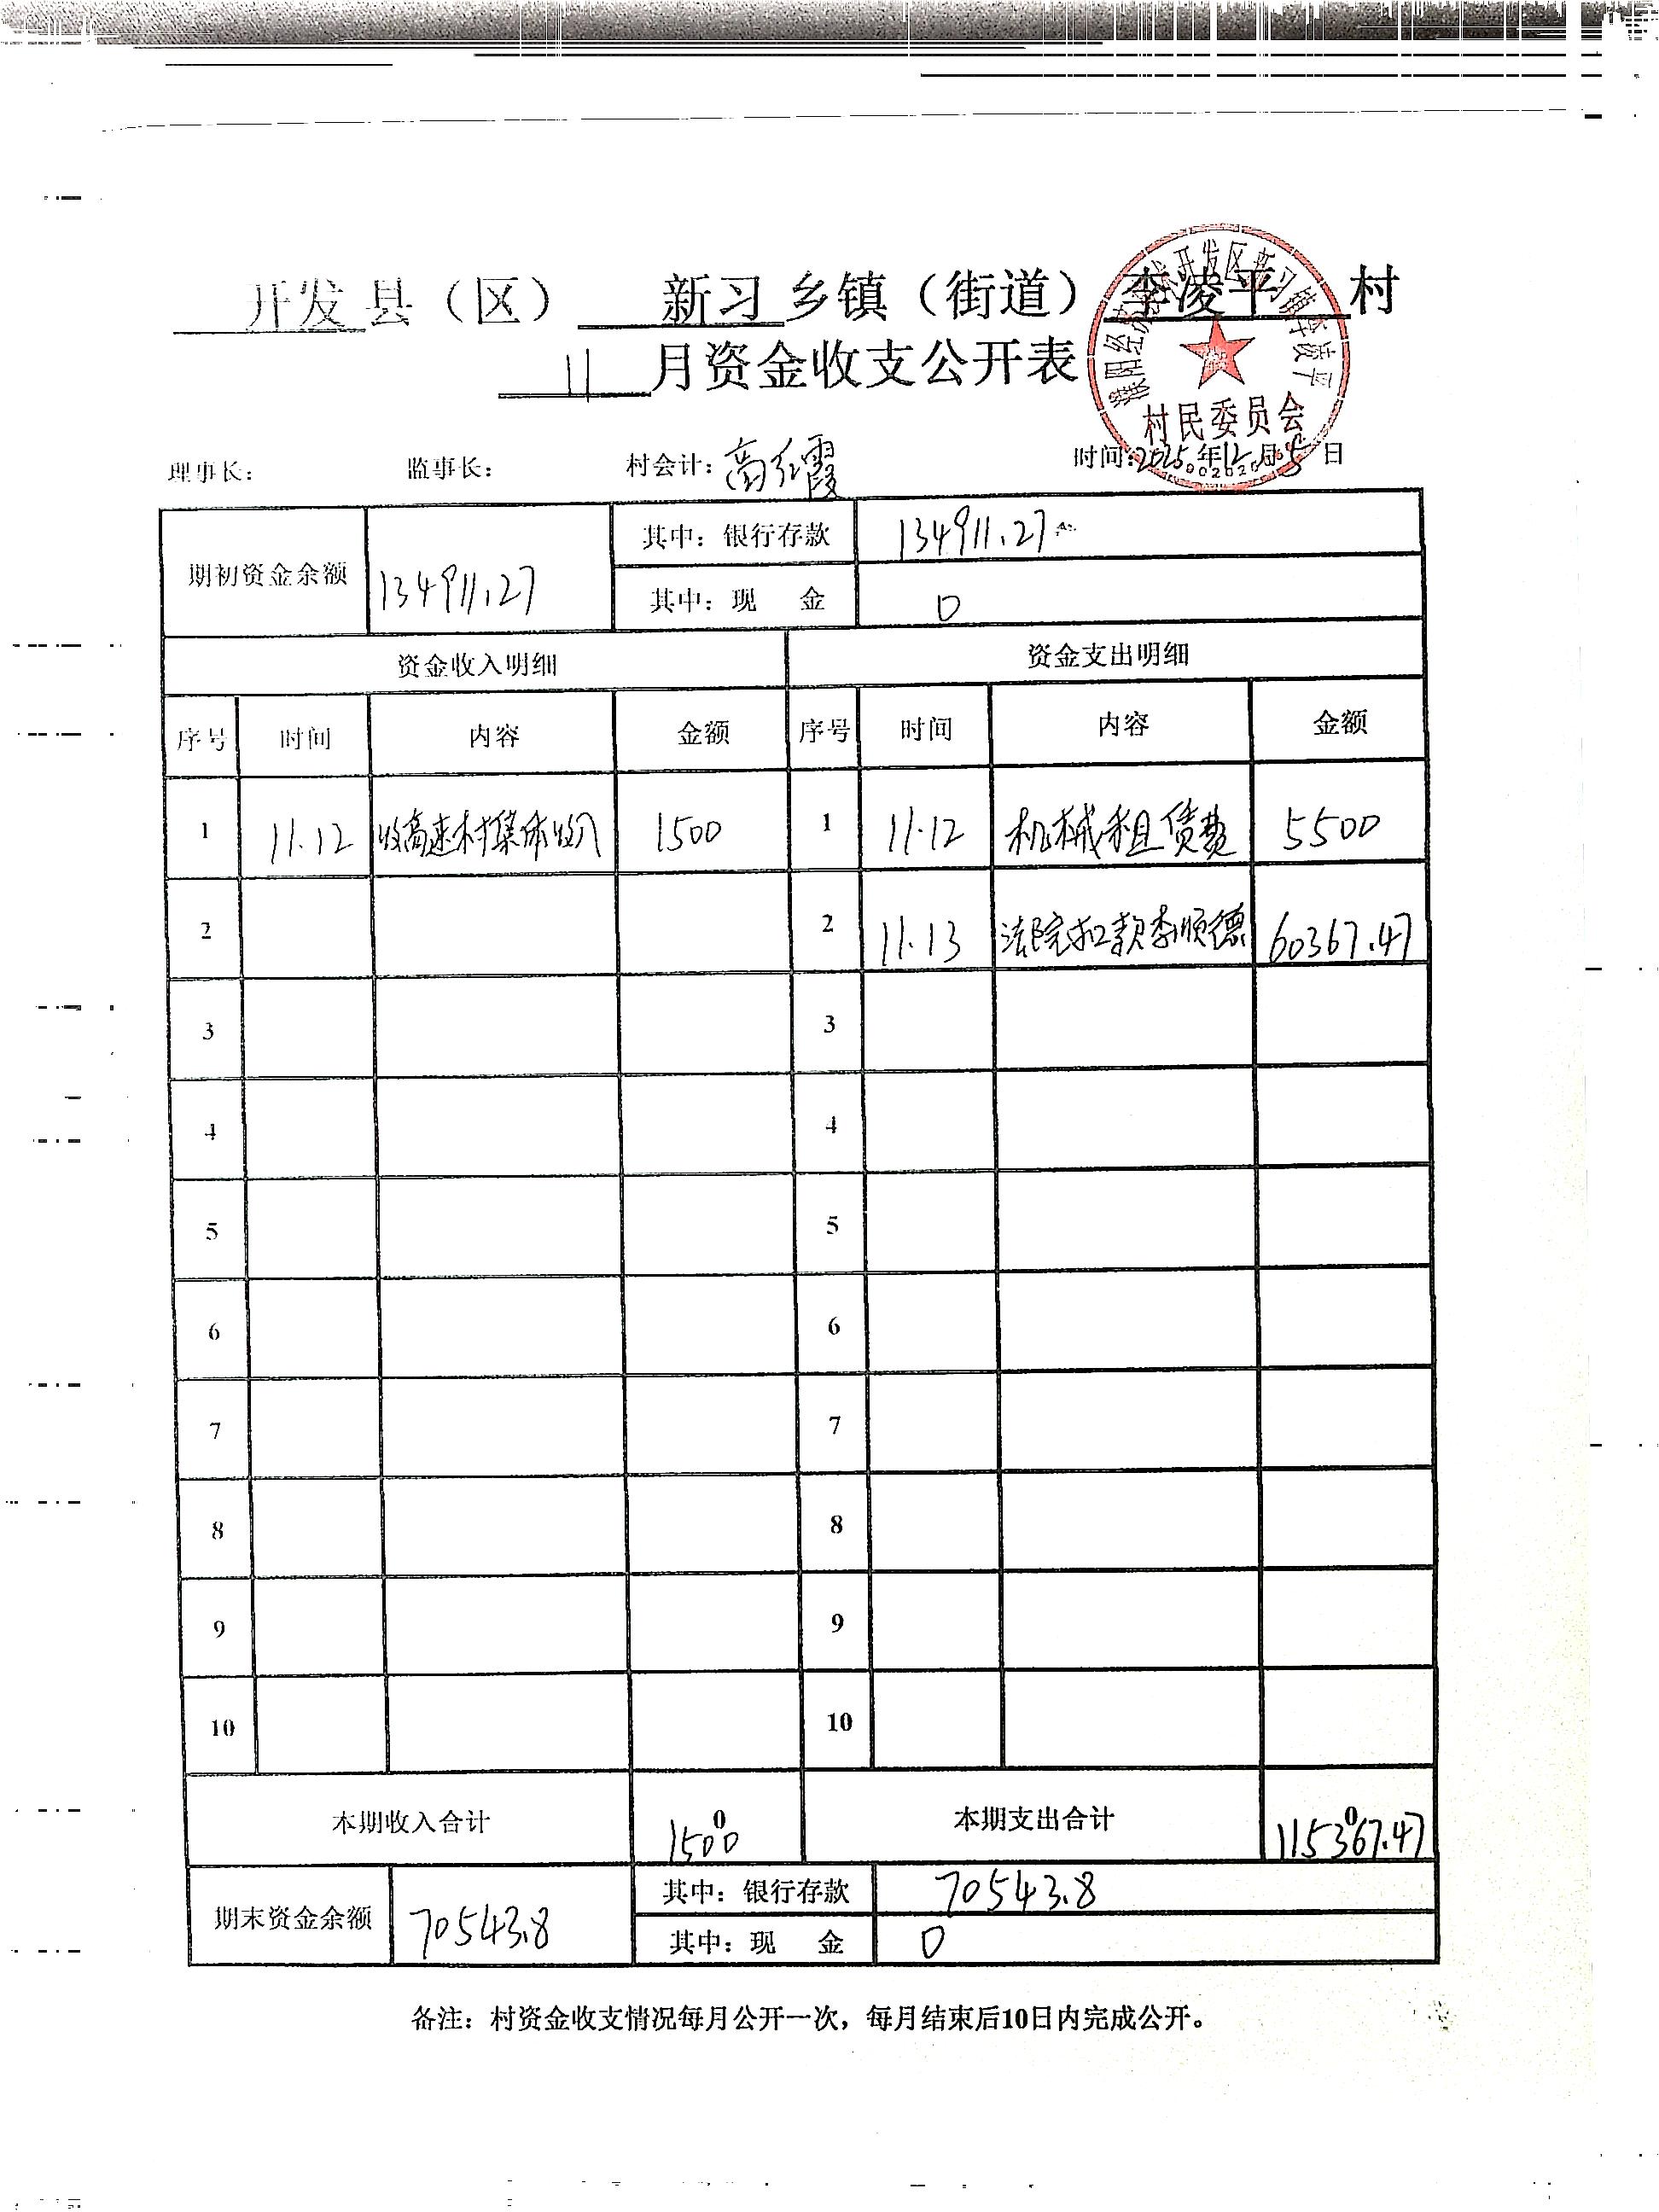 开发县（区） 新习乡镇（街道）李凌平村
11月资金收支公开表
濮阳经济技术开发区新习镇李凌平
村民委员会
理事长： 监事长： 村会计：高红霞 时间：2025年12月5日
期初资金余额 134911.27 其中：银行存款 134911.27
其中：现 金 0
资金收入明细 资金支出明细
序号 时间 内容 金额 序号 时间 内容 金额
1 11.12 收高速村集体收入 1500 1 11.12 机械租赁费 5500
2 2 11.13 法院扣款李顺德 60367.47
3 3
4 4
5 5
6 6
7 7
8 8
9 9
10 10
本期收入合计 0 1500 本期支出合计 0 115367.47
期末资金余额 70543.8 其中：银行存款 70543.8
其中：现 金 0
备注：村资金收支情况每月公开一次，每月结束后10日内完成公开。